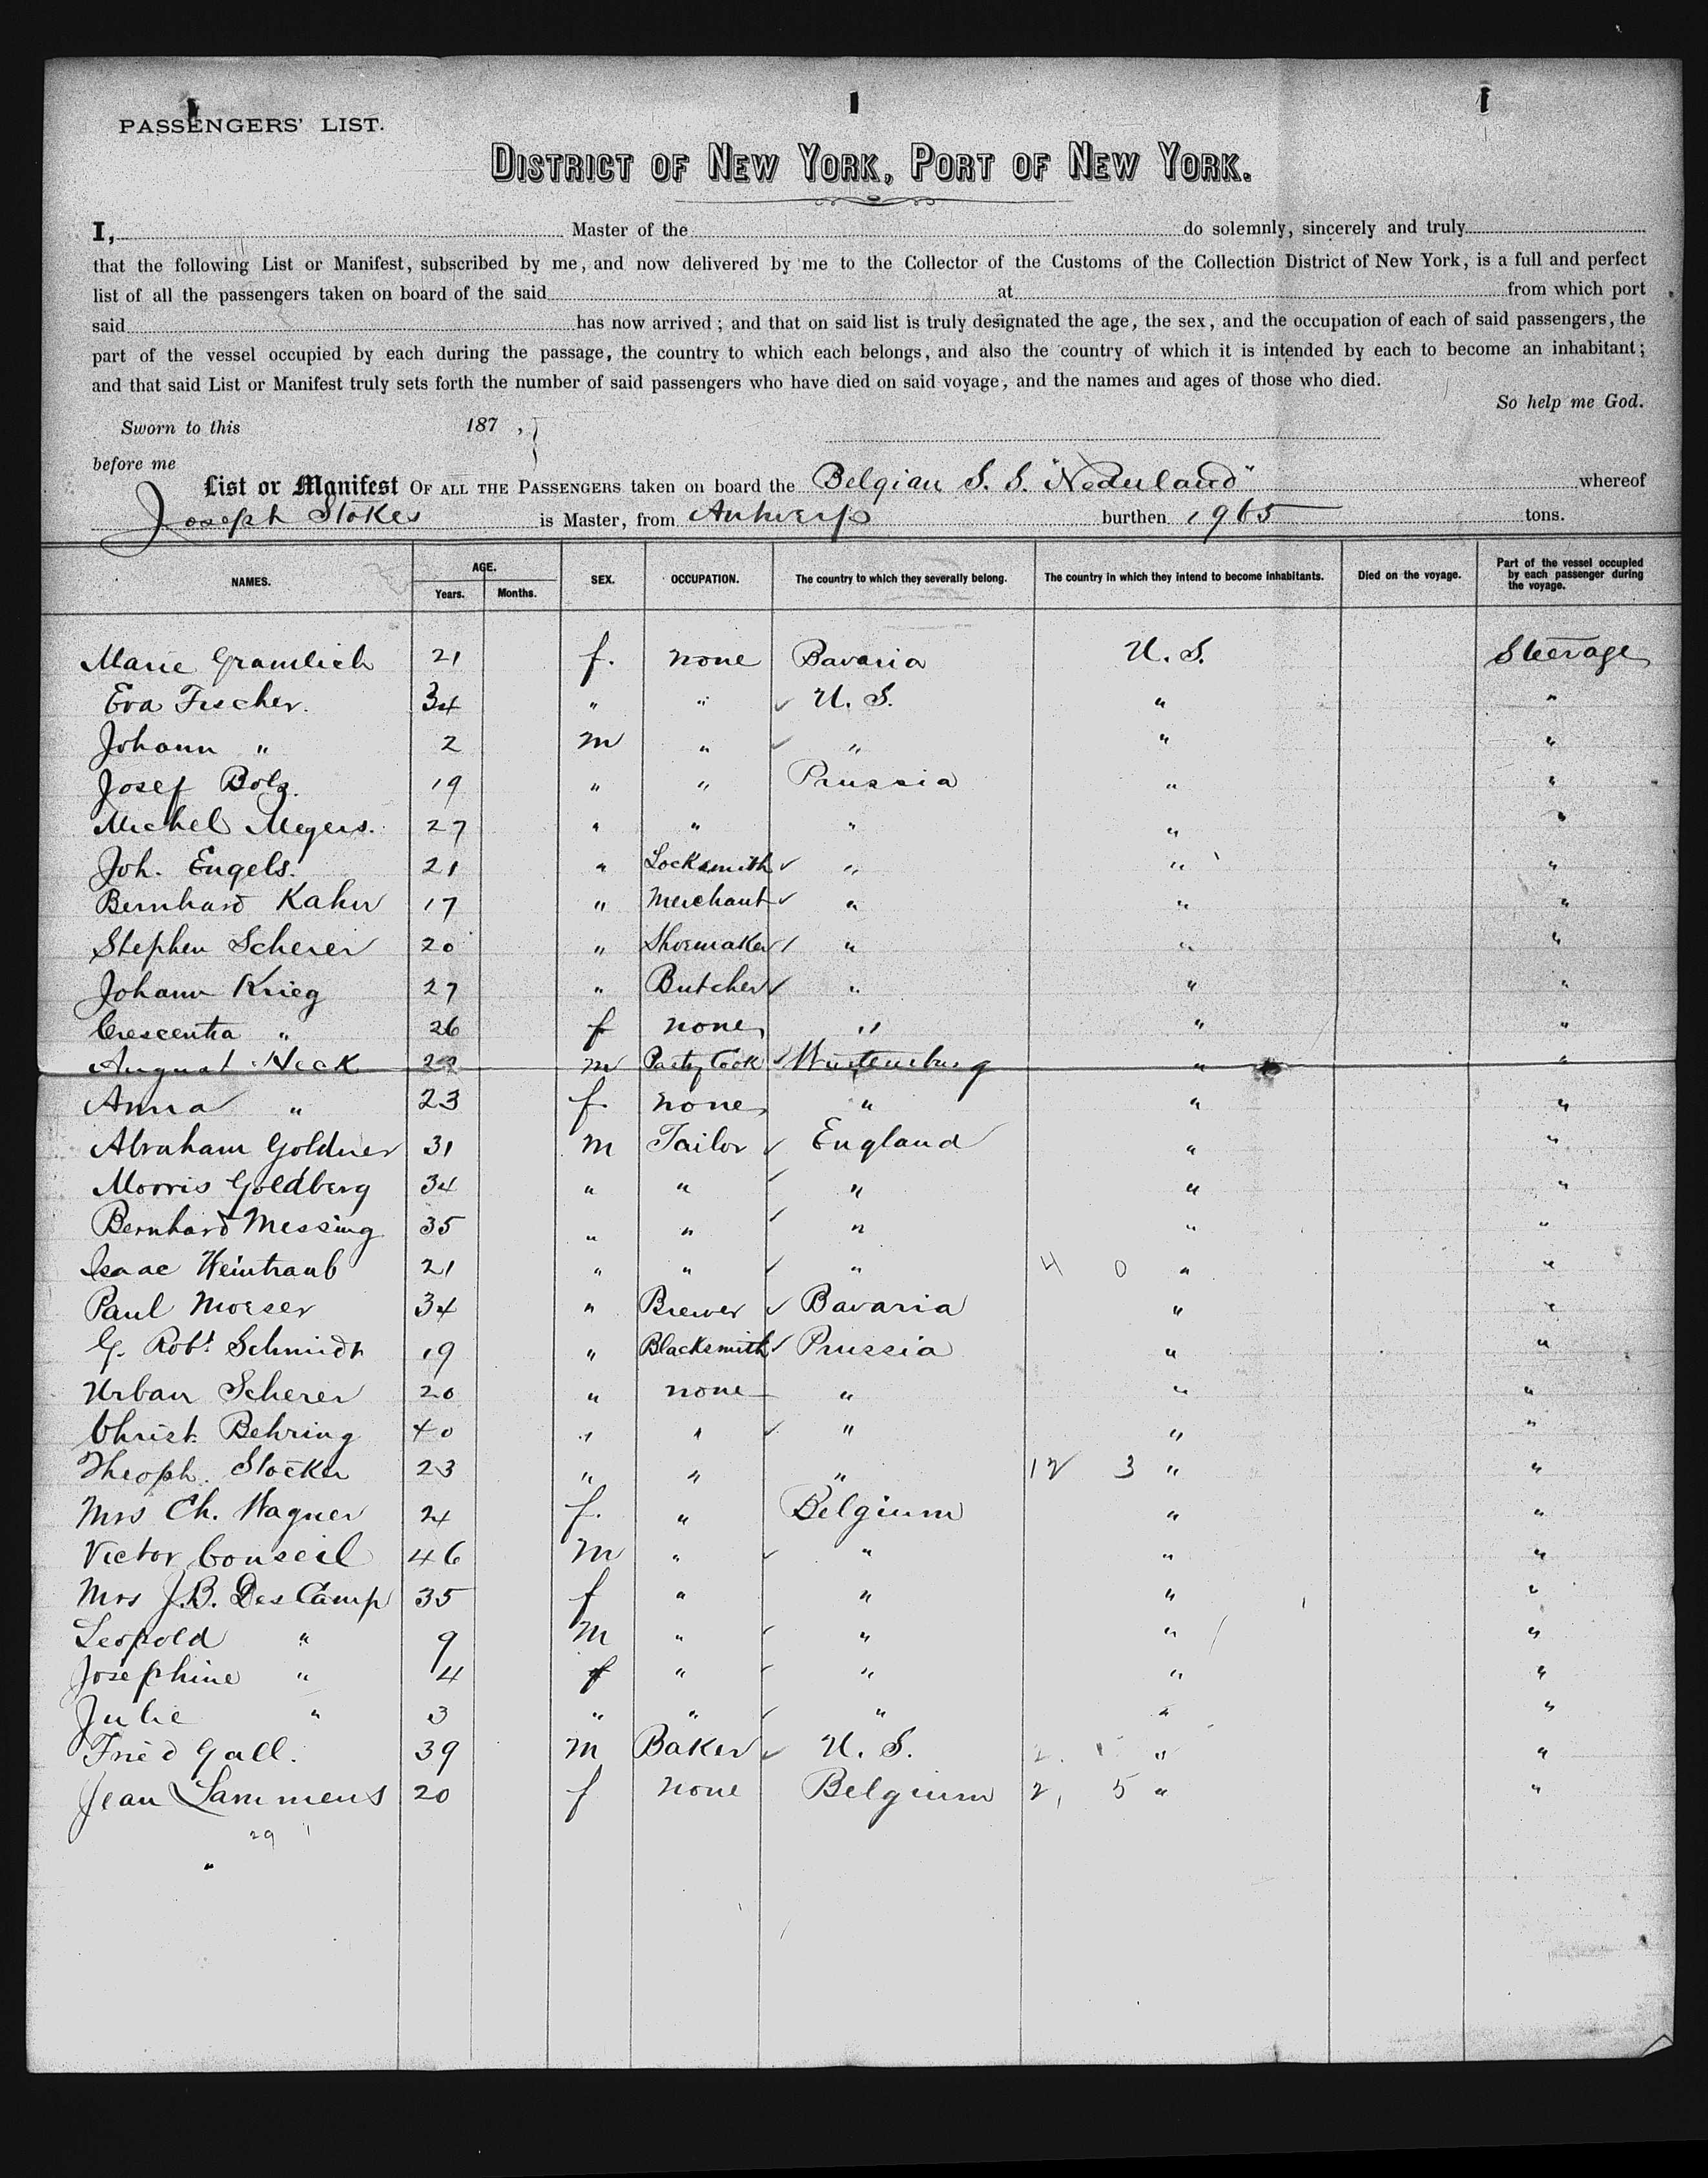 PASSENGERS' LIST.
DISTRICT OF NEW YORK, PORT OF NEW YORK.
I, Master of the do solemnly, sincerely and truly
that the following List or Manifest, subscribed by me, and now delivered by me to the Collector of the Customs of the Collection District of New York, is a full and perfect
list of all the passengers taken on board of the said at from which port
said has now arrived; and that on said list is truly designated the age, the sex, and the occupation of each of said passengers, the
part of the vessel occupied by each during the passage, the country to which each belongs, and also the country of which it is intended by each to become an inhabitant;
and that said List or Manifest truly sets forth the number of said passengers who have died on said voyage, and the names and ages of those who died.
So help me God.
Sworn to this 187 ,
before me
List or Manifest OF ALL THE PASSENGERS taken on board the Belgian S. S. "Nederland" whereof
Joseph Stokes is Master, from Antwerp burthen 1965 tons.
NAMES. AGE. Years. Months. SEX. OCCUPATION. The country to which they severally belong. The country in which they intend to become inhabitants. Died on the voyage. Part of the vessel occupied by each passenger during the voyage.
Marie Gramlich 21 f. none Bavaria U. S. Steerage
Eva Fischer. 34 " " U. S. " "
Johann " 2 m " " " "
Josef Bolz. 19 " " Prussia " "
Michel Meyers. 27 " " " " "
Joh. Engels. 21 " Locksmith " " "
Bernhard Kahn 17 " Merchant " " "
Stephen Scherer 20 " Shoemaker " " "
Johann Krieg 27 " Butcher " " "
Crescentia " 26 f none " " "
August Heck 22 m Pastry Cook Wurtemburg " "
Anna " 23 f none " " "
Abraham Goldner 31 m Tailor England " "
Morris Goldberg 34 " " " " "
Bernhard Messing 35 " " " " "
Isaac Weintraub 21 " " " 4 0 " "
Paul Moeser 34 " Brewer Bavaria " "
G. Robt Schmidt 19 " Blacksmith Prussia " "
Urban Scherer 20 " none " " "
Christ. Behring 40 " " " " "
Theoph. Stocker 23 " " " 12 3 " "
Mrs Ch. Wagner 24 f. " Belgium " "
Victor Conseil 46 m " " " "
Mrs J.B. DesCamp 35 f " " " "
Leopold " 9 m " " " "
Josephine " 4 f " " " "
Julie " 3 " " " " "
Fried Gall. 39 m Baker U. S. 2. " "
Jean Lammens 20 f none Belgium 2, 5 " "
29
"